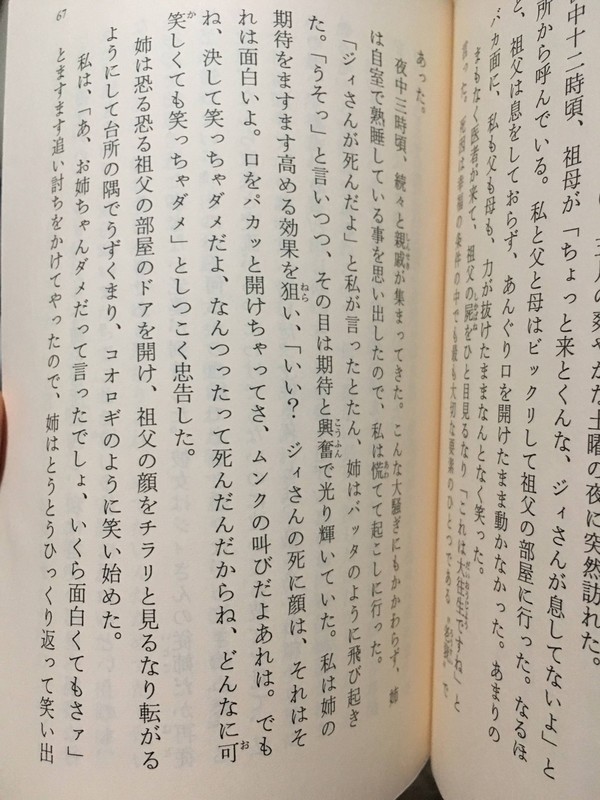 五月の爽やかな土曜の夜に突然訪れた。
中十二時頃、祖母が「ちょっと来とくんな、ジィさんが息してないよ」と
所から呼んでいる。私と父と母はビックリして祖父の部屋に行った。なるほ
と、祖父は息をしておらず、あんぐり口を開けたまま動かなかった。あまりの
バカ面に、私も父も母も、力が抜けたままなんとなく笑った。
まもなく医者が来て、祖父の屍をひと目見るなり「これは大往生ですね」と
言った。死因は幸福の条件の中でも最も大切な要素のひとつである〝老衰〟で
あった。
夜中三時頃、続々と親戚が集まってきた。こんな大騒ぎにもかかわらず、姉
は自室で熟睡している事を思い出したので、私は慌てて起こしに行った。
「ジィさんが死んだよ」と私が言ったとたん、姉はバッタのように飛び起き
た。「うそっ」と言いつつ、その目は期待と興奮で光り輝いていた。私は姉の
期待をますます高める効果を狙い、「いい？　ジィさんの死に顔は、それはそ
れは面白いよ。口をパカッと開けちゃってさ、ムンクの叫びだよあれは。でも
ね、決して笑っちゃダメだよ、なんつったって死んだんだからね、どんなに可
笑しくても笑っちゃダメ」としつこく忠告した。
姉は恐る恐る祖父の部屋のドアを開け、祖父の顔をチラリと見るなり転がる
ようにして台所の隅でうずくまり、コオロギのように笑い始めた。
私は、「あ、お姉ちゃんダメだって言ったでしょ、いくら面白くてもさァ」
とますます追い討ちをかけてやったので、姉はとうとうひっくり返って笑い出
67